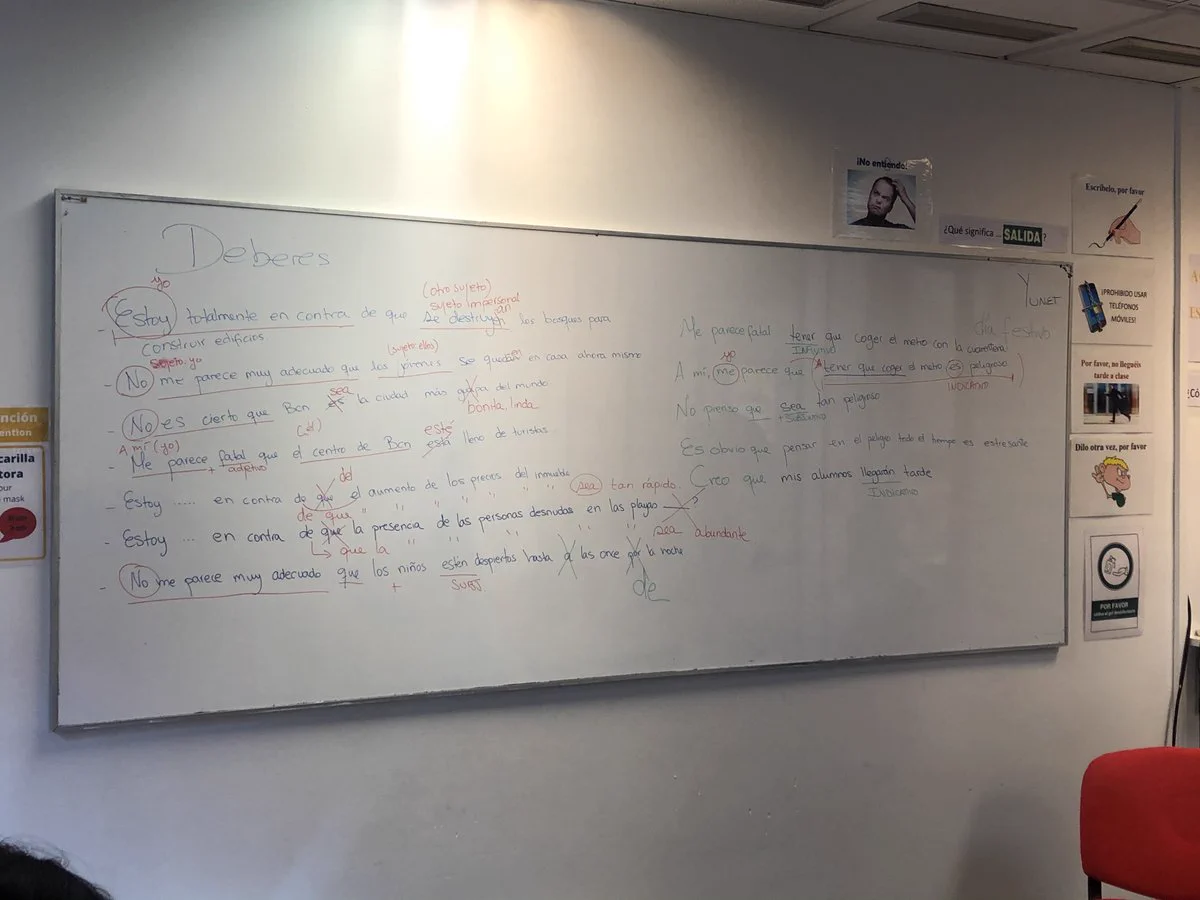 Deberes
yo
(otro sujeto)
sujeto impersonal
- Estoy totalmente en contra de que se destruyan los bosques para
construir edificios
Sujeto: yo
(sujeto: ellos)
- No me parece muy adecuado que los jóvenes se queden en casa ahora mismo
sea
- No es cierto que Bcn es la ciudad más guapa del mundo
bonita, linda
A mí (yo)
(él)
esté
- Me parece fatal que el centro de Bcn está lleno de turistas
+ adjetivo
del
- Estoy ..... en contra de que el aumento de los precios del inmueble
de que " " " " " " sea tan rápido.
- Estoy ... en contra de que la presencia de las personas desnudas en las playas
que la " " " " sea abundante
- No me parece muy adecuado que los niños estén despiertos hasta a las once por la noche
+ SUBJ.
de
Yunet
día festivo
Me parece fatal tener que coger el metro con la
INFINITIVO
yo
A mí, me parece que tener que coger el metro es peligroso
INDICATIVO
No pienso que sea tan peligroso
+ SUBJUNTIVO
Es obvio que pensar en el peligro todo el tiempo es estresante
Creo que mis alumnos llegarán tarde
?
INDICATIVO
¡No entiendo!
¿Qué significa ... SALIDA ?
Escríbelo, por favor
¡PROHIBIDO USAR
TELÉFONOS
MÓVILES!
Por favor, no lleguéis
tarde a clase
Dilo otra vez, por favor
POR FAVOR
nción
ention
carilla
tora
our
mask
¿Có